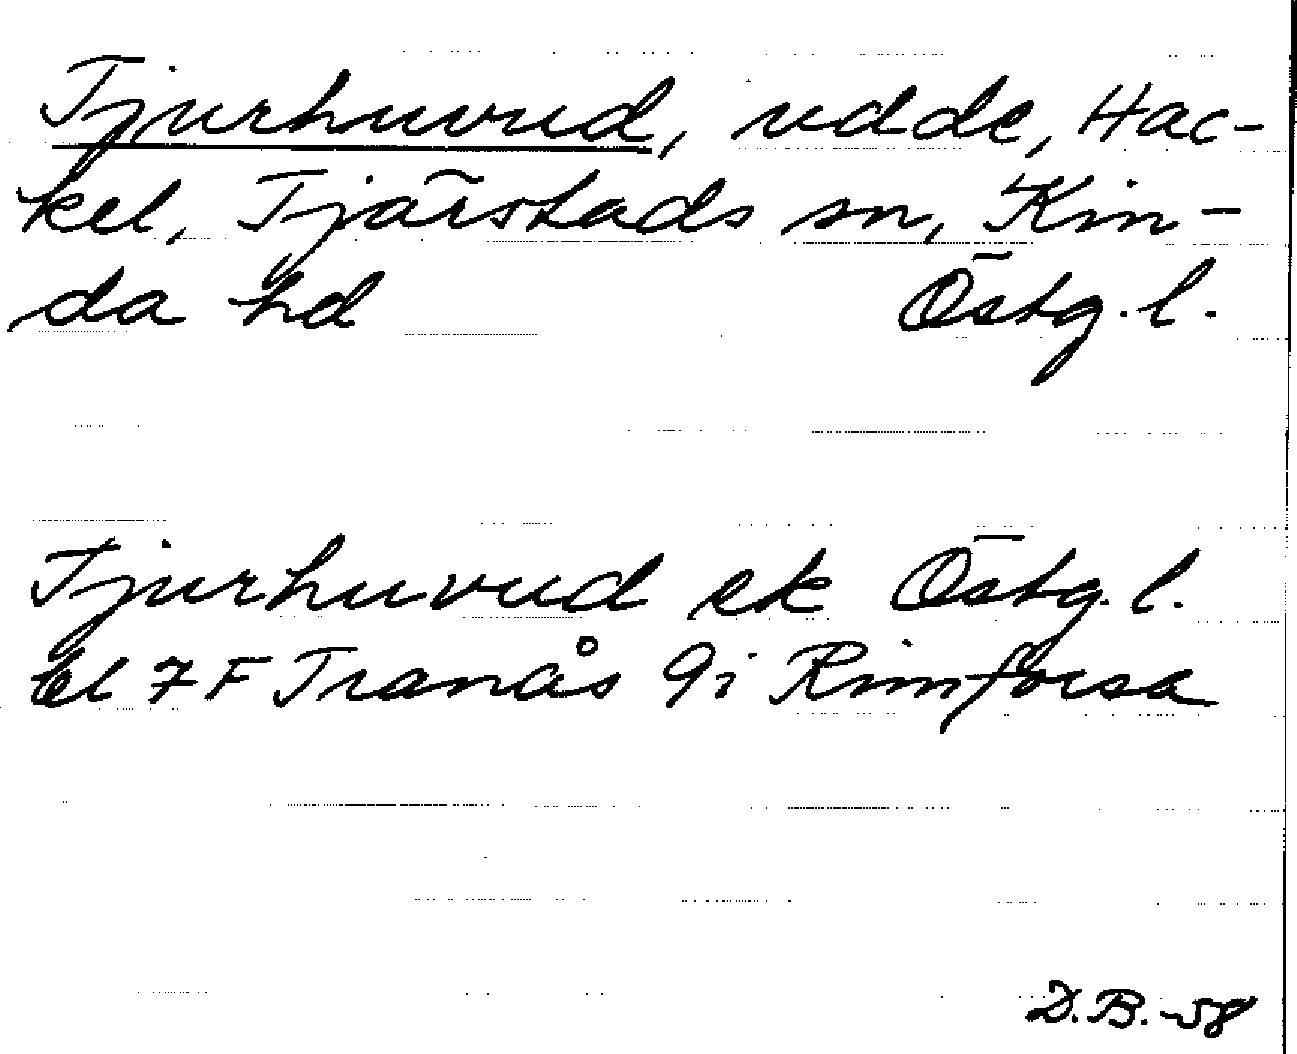 Tjurhuvud, udde, Hac-
kel, Tjärstads sn, Kin-
da hd Östg. l.
Tjurhuvud ek Östg. l.
bl 7 F Tranås 9i Rimforsa
D.B. -58